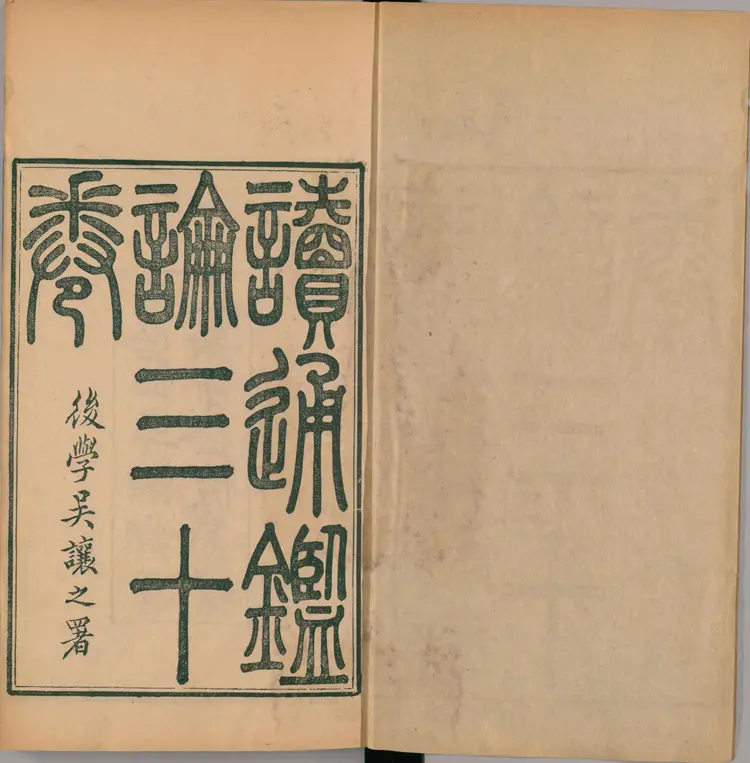 讀通鑑
論三十
卷
後學吴讓之署